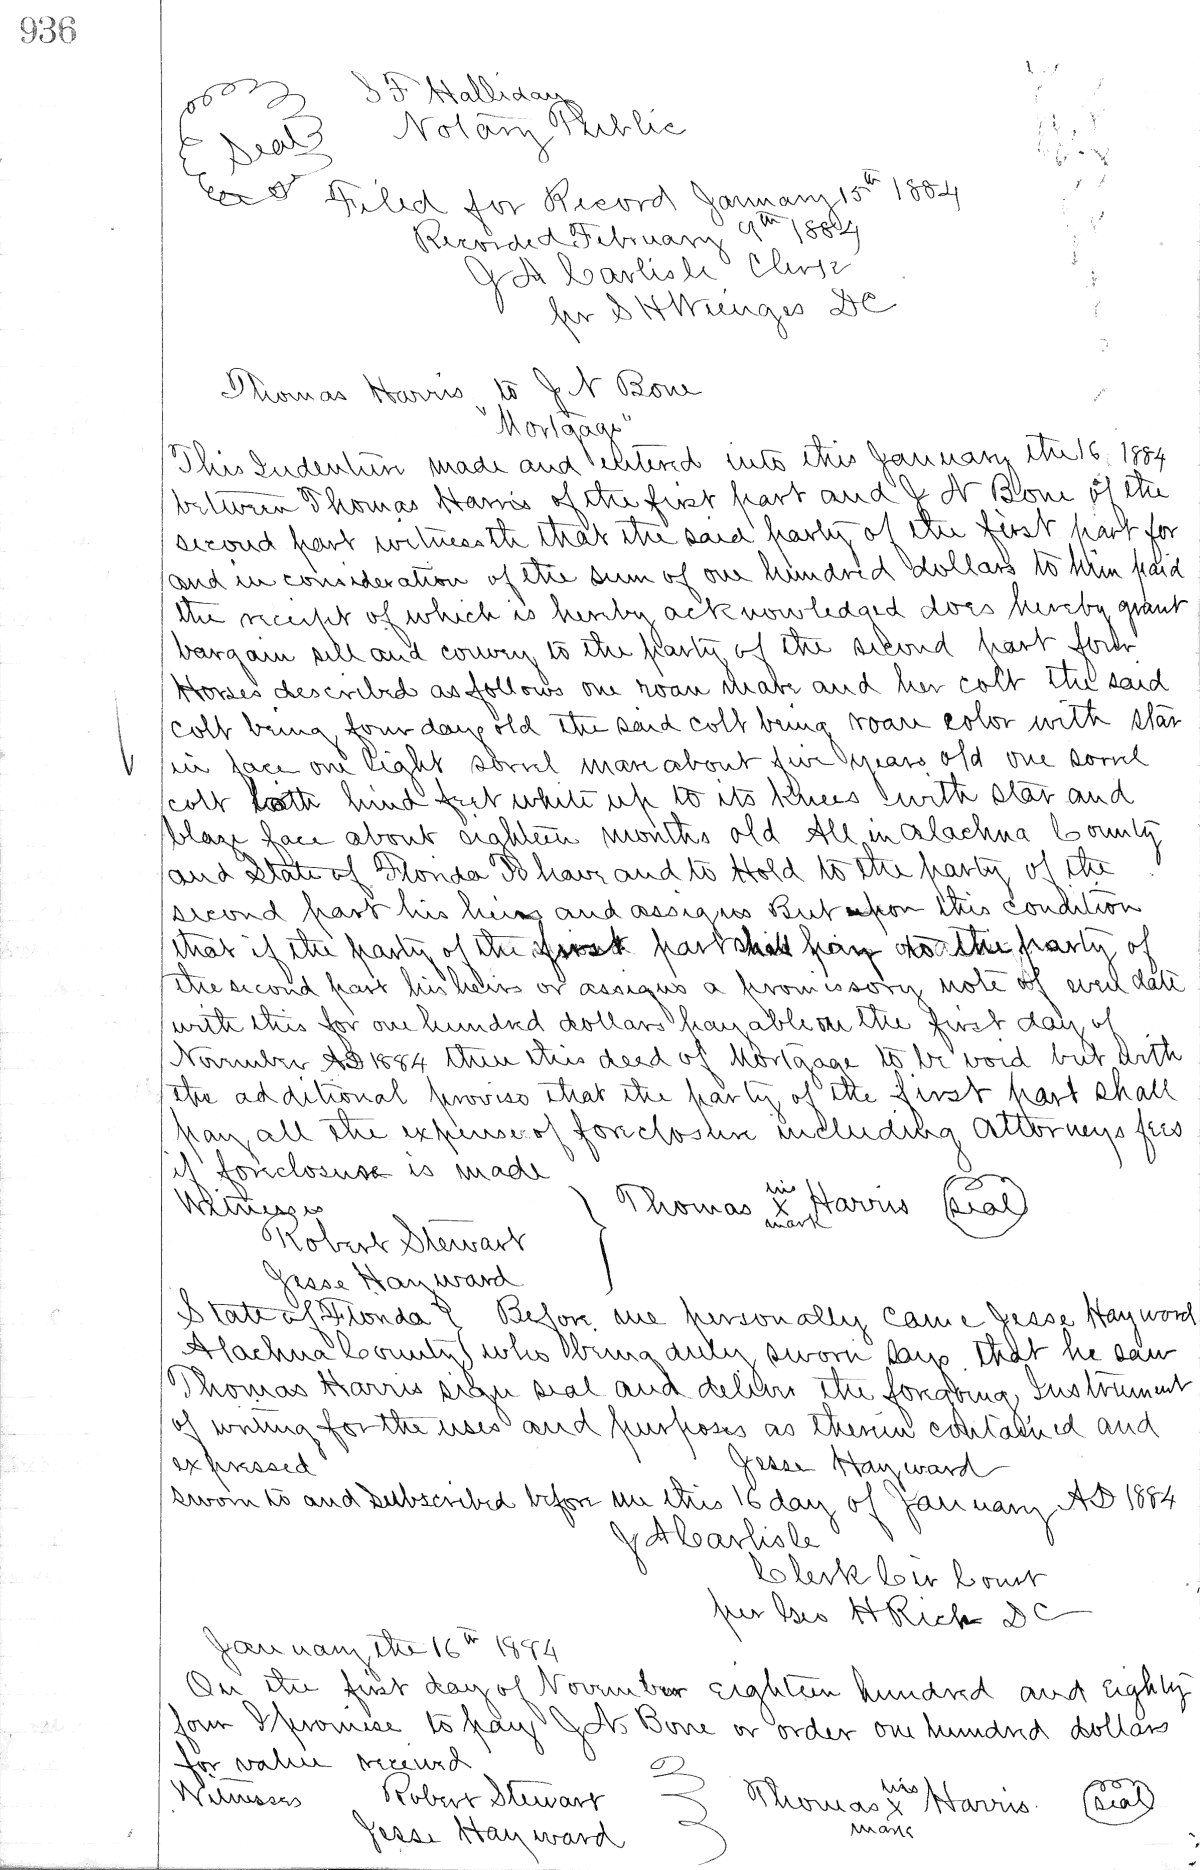 936
S F Halliday
Notary Public
Seal
Filed for Record January 15th 1884
Recorded February 9th 1884
J A Carlisle Clerk
per S H Wienges DC
Thomas Harris to J N Bone
"Mortgage"
This Indenture made and entered into this January the 16, 1884
between Thomas Harris of the first part and J N Bone of the
second part witnesseth that the said party of the first part for
and in consideration of the sum of one hundred dollars to him paid
the receipt of which is hereby acknowledged does hereby grant
bargain sell and convey to the party of the second part four
Horses described as follows one roan mare and her colt the said
colt being four days old the said colt being roan color with star
in face one light sorrel mare about five years old one sorrel
colt both hind feet white up to its knees with star and
blaze face about eighteen months old All in Alachua County
and State of Florida To have and to Hold to the party of the
second part his heirs and assigns But upon this condition
that if the party of the first part shall pay to the party of
the second part his heirs or assigns a promissory note of even date
with this for one hundred dollars payable on the first day of
November AD 1884 then this deed of Mortgage to be void but with
the additional proviso that the party of the first part shall
pay all the expenses of foreclosure including Attorneys fees
if foreclosure is made
Witnesses Thomas his X mark Harris seal
Robert Stewart
Jesse Hayward
State of Florida } Before me personally came Jesse Hayward
Alachua County } who being duly sworn says that he saw
Thomas Harris sign seal and deliver the foregoing Instrument
of writing for the uses and purposes as therein contained and
expressed Jesse Hayward
sworn to and subscribed before me this 16 day of January AD 1884
J A Carlisle
Clerk Cir Court
per Geo H Rich DC
January the 16th 1884
On the first day of November eighteen hundred and eighty
four I promise to pay J N Bone or order one hundred dollars
for value received
Witnesses Robert Stewart Thomas his X mark Harris seal
Jesse Hayward